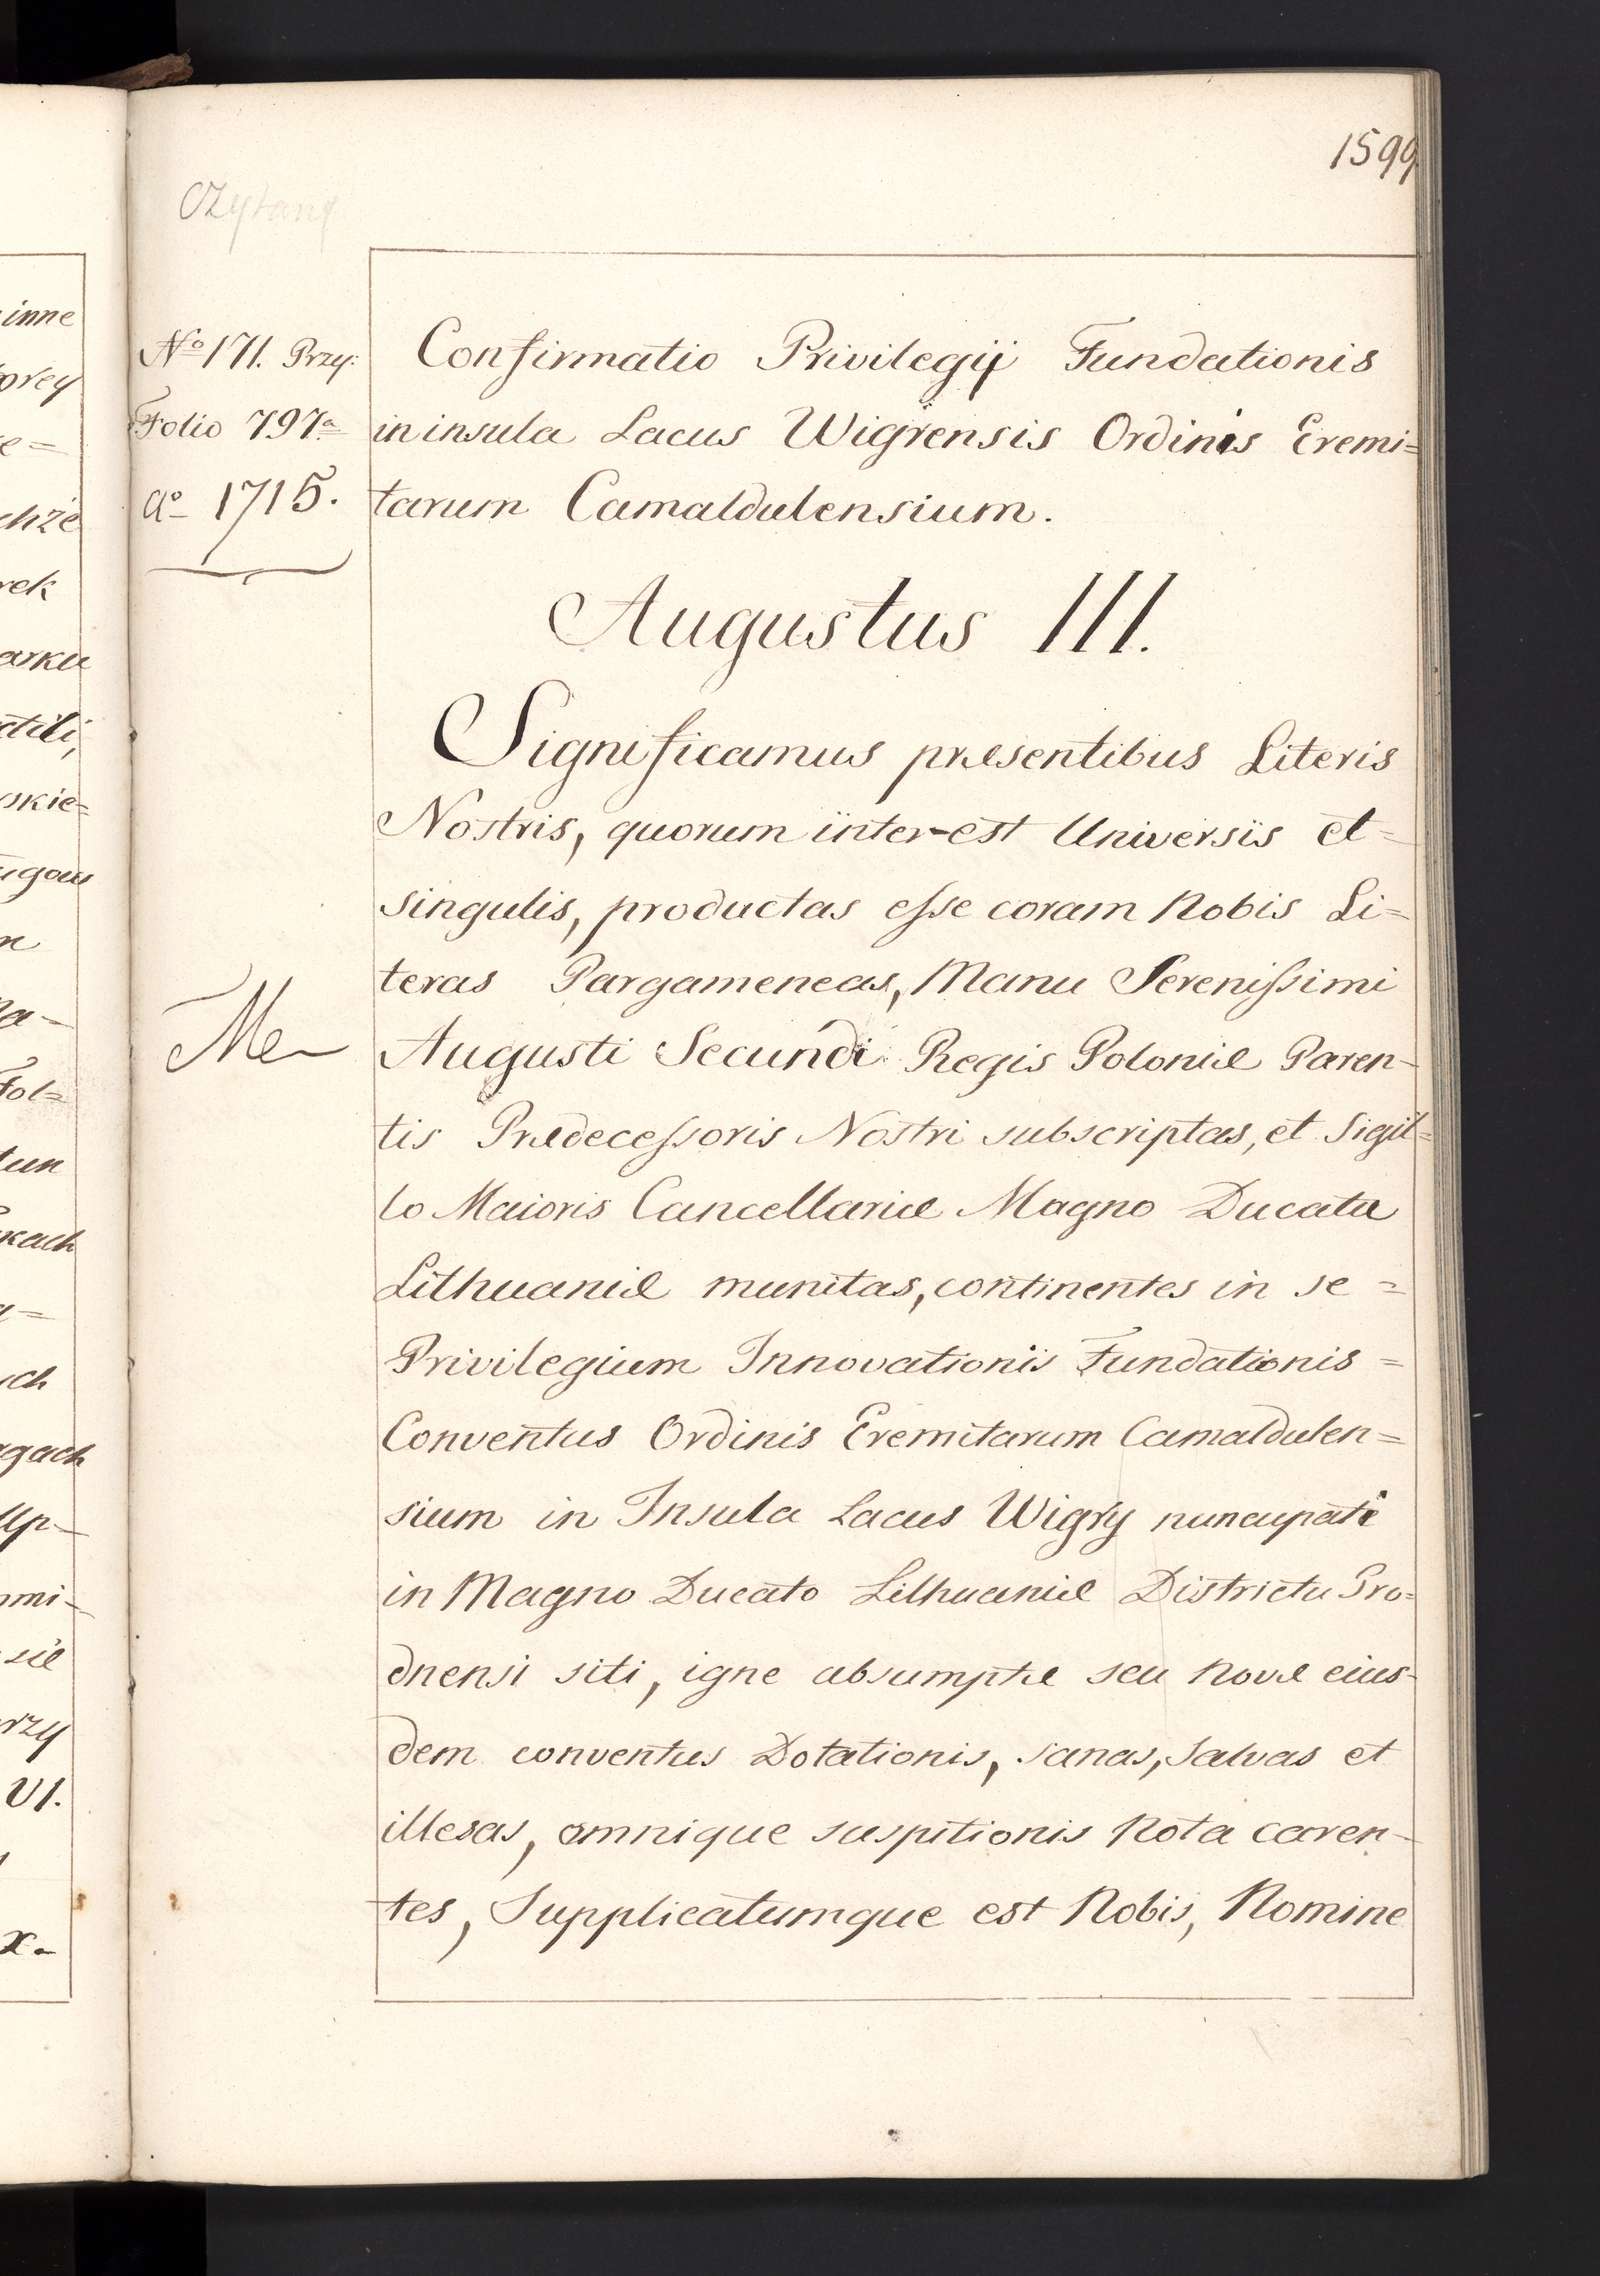 1599
Czytany
No 171. Przy:
Folio 797a
Ao 1715.
Confirmatio Privilegij Fundationis
in insula Lacus Wigrensis Ordinis Eremi=
tarum Camaldulensium.
Augustus III.
Significamus præsentibus Literis
Nostris, quorum inter-est Universis et=
singulis, productas esse coram Nobis Li=
teras Pargameneas, Manu Serenissimi
Me
Augusti Secundi Regis Poloniæ Paren-
tis Prædecessoris Nostri subscriptas, et Sigil=
lo Maioris Cancellariæ Magno Ducatu
Lithuaniæ munitas, continentes in se=
Privilegium Innovationis Fundationis=
Conventus Ordinis Eremitarum Camaldulen=
sium in Insula Lacus Wigry nuncupati
in Magno Ducato Lithuaniæ Districtu Gro=
dnensi siti, igne absumptæ seu novæ eius-
dem conventus Dotationis, sanas, salvas et
illesas, omnique suspitionis Nota caren-
tes, Supplicatumque est Nobis, Nomine
inne
orey
e=
chże
rek
arku
skie=
ugow
na-
Fol=
kach
ch
Up-
omi-
się
rzy
VI.
x-